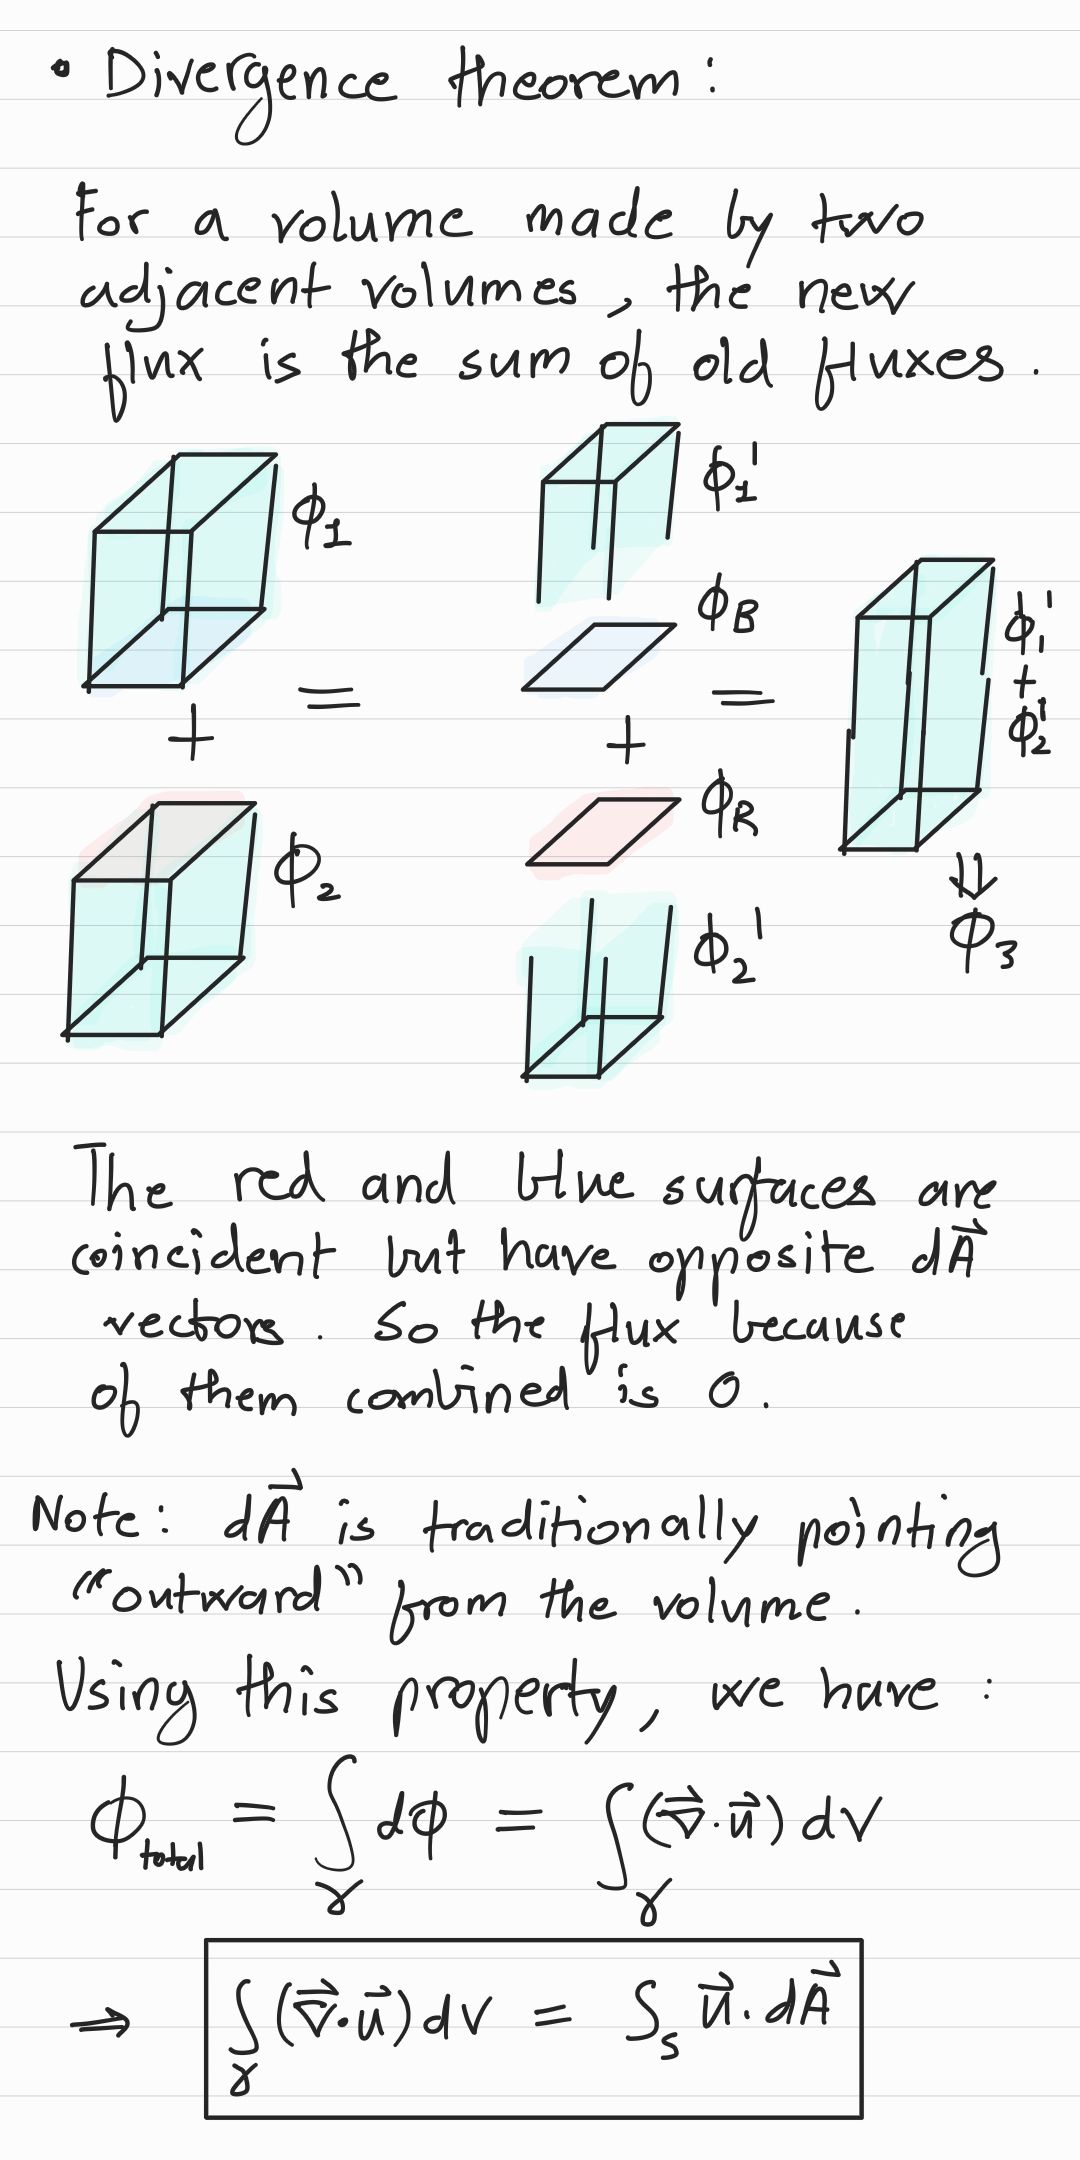 • Divergence theorem:
For a volume made by two
adjacent volumes, the new
flux is the sum of old fluxes.
ϕ₁
+
ϕ₂
=
ϕ₁'
ϕ_B
+
ϕ_R
ϕ₂'
=
ϕ₁'
+
ϕ₂'
⇓
ϕ₃
The red and blue surfaces are
coincident but have opposite dA⃗
vectors. So the flux because
of them combined is 0.
Note: dA⃗ is traditionally pointing
"outward" from the volume.
Using this property, we have:
ϕ_total = ∫_γ dϕ = ∫_γ (∇⃗·u⃗) dV
⇒ ∫_γ (∇⃗·u⃗) dV = ∫_S u⃗·dA⃗